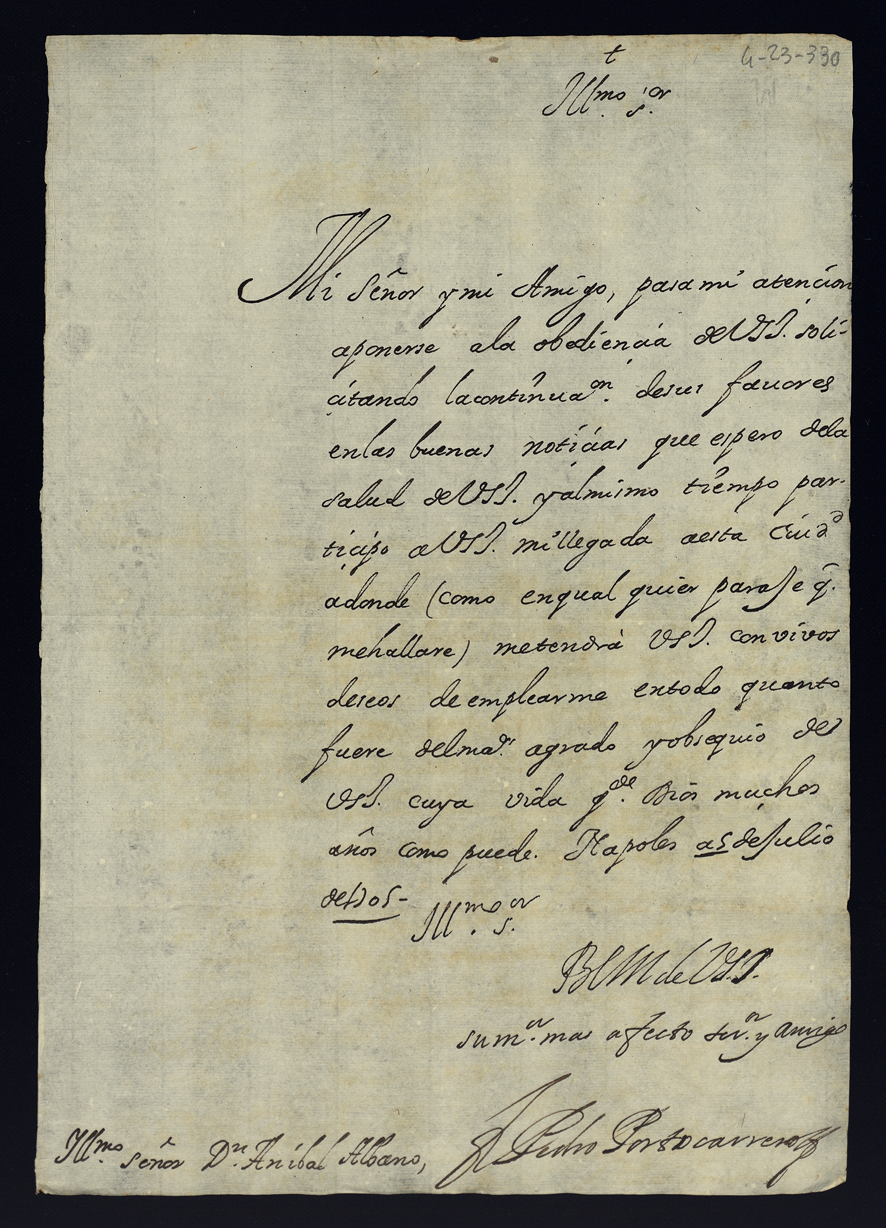 4-23-330
†
Illmo. s.or
Mi Señor y mi Amigo, pasa mi atencion
aponerse ala obediencia deVSI. soli-
citando lacontinuaon. desus favores
enlas buenas noticias que espero dela
salud deVSI. yalmismo tiempo par-
ticipo aVSI. mi llegada aesta Ciudd
adonde (como enqual quier paraje q̃.
mehallare) metendrà VSI. con vivos
deseos de emplearme entodo quanto
fuere delmaor. agrado yobsequio de
VSI. cuya vida gde. Dios muchos
años como puede. Napoles a5deJulio
de1705-
Illmo. s.or
BLM de VSI.
sumor. mas afecto seror. y amigo
Pedro Portocarrero
Illmo. señor Dn. Anibal Albano,